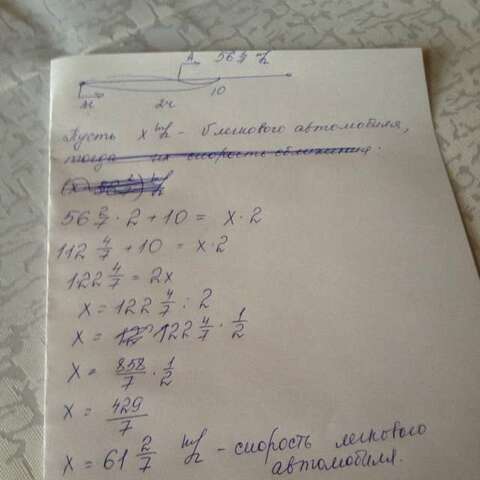 А 56 2/7 км/ч
2ч 10
Пусть x км/ч - v легкового автомобиля,
тогда их скорость сближения:
56 2/7 · 2 + 10 = x · 2
112 4/7 + 10 = x · 2
122 4/7 = 2x
x = 122 4/7 : 2
x = 122 4/7 · 1/2
x = 858/7 · 1/2
x = 429/7
x = 61 2/7 км/ч - скорость легкового
автомобиля.